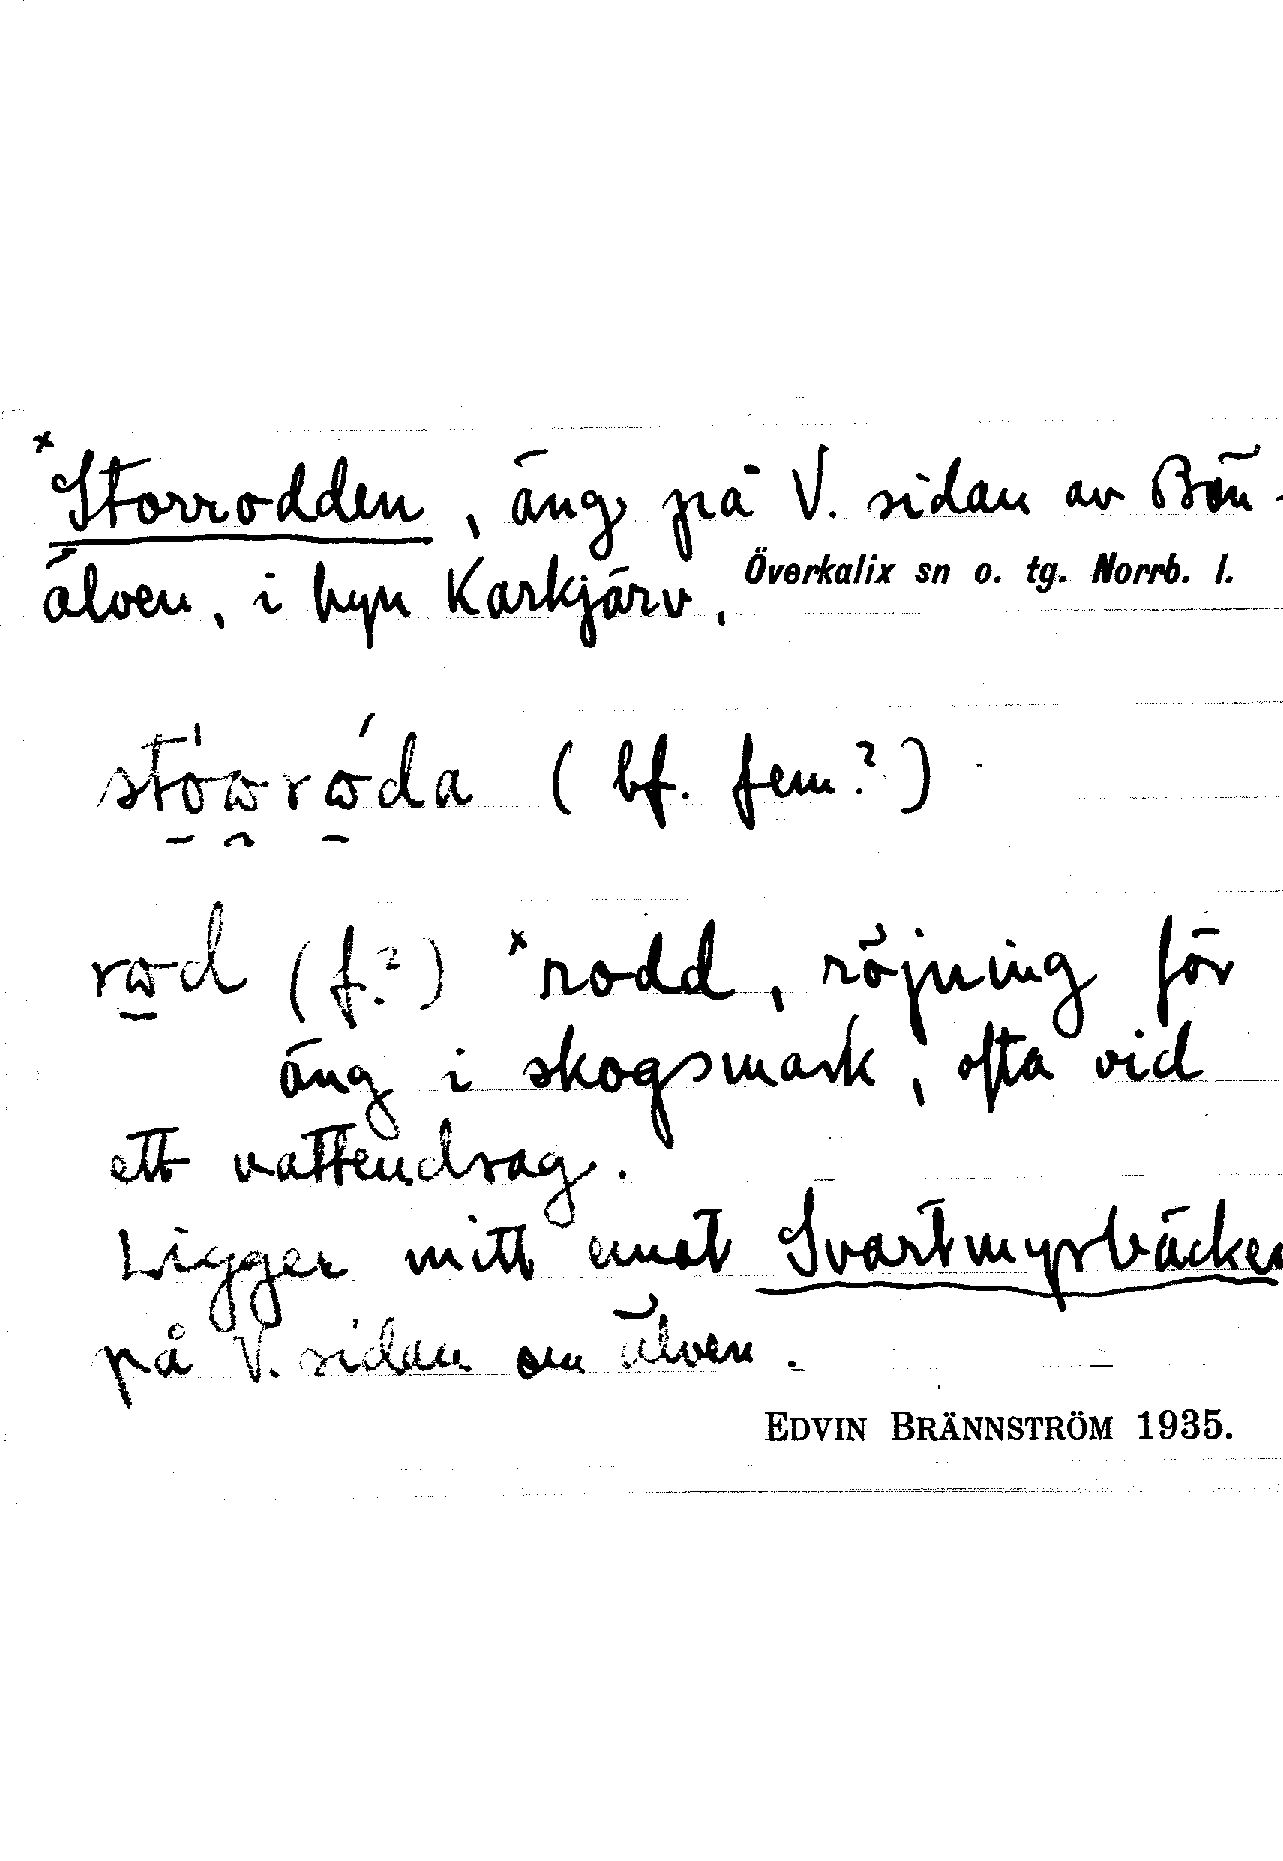 ˣStorrodden, äng på V. sidan av Bön-
älven, i byn Karkjärv, Överkalix sn o. tg. Norrb. l.
(bf. fem?)
(f.?) ˣrodd, röjning för
äng i skogsmark, ofta vid
ett vattendrag.
Ligger mitt emot Svartmyrbäcken
på V. sidan om älven.
EDVIN BRÄNNSTRÖM 1935.